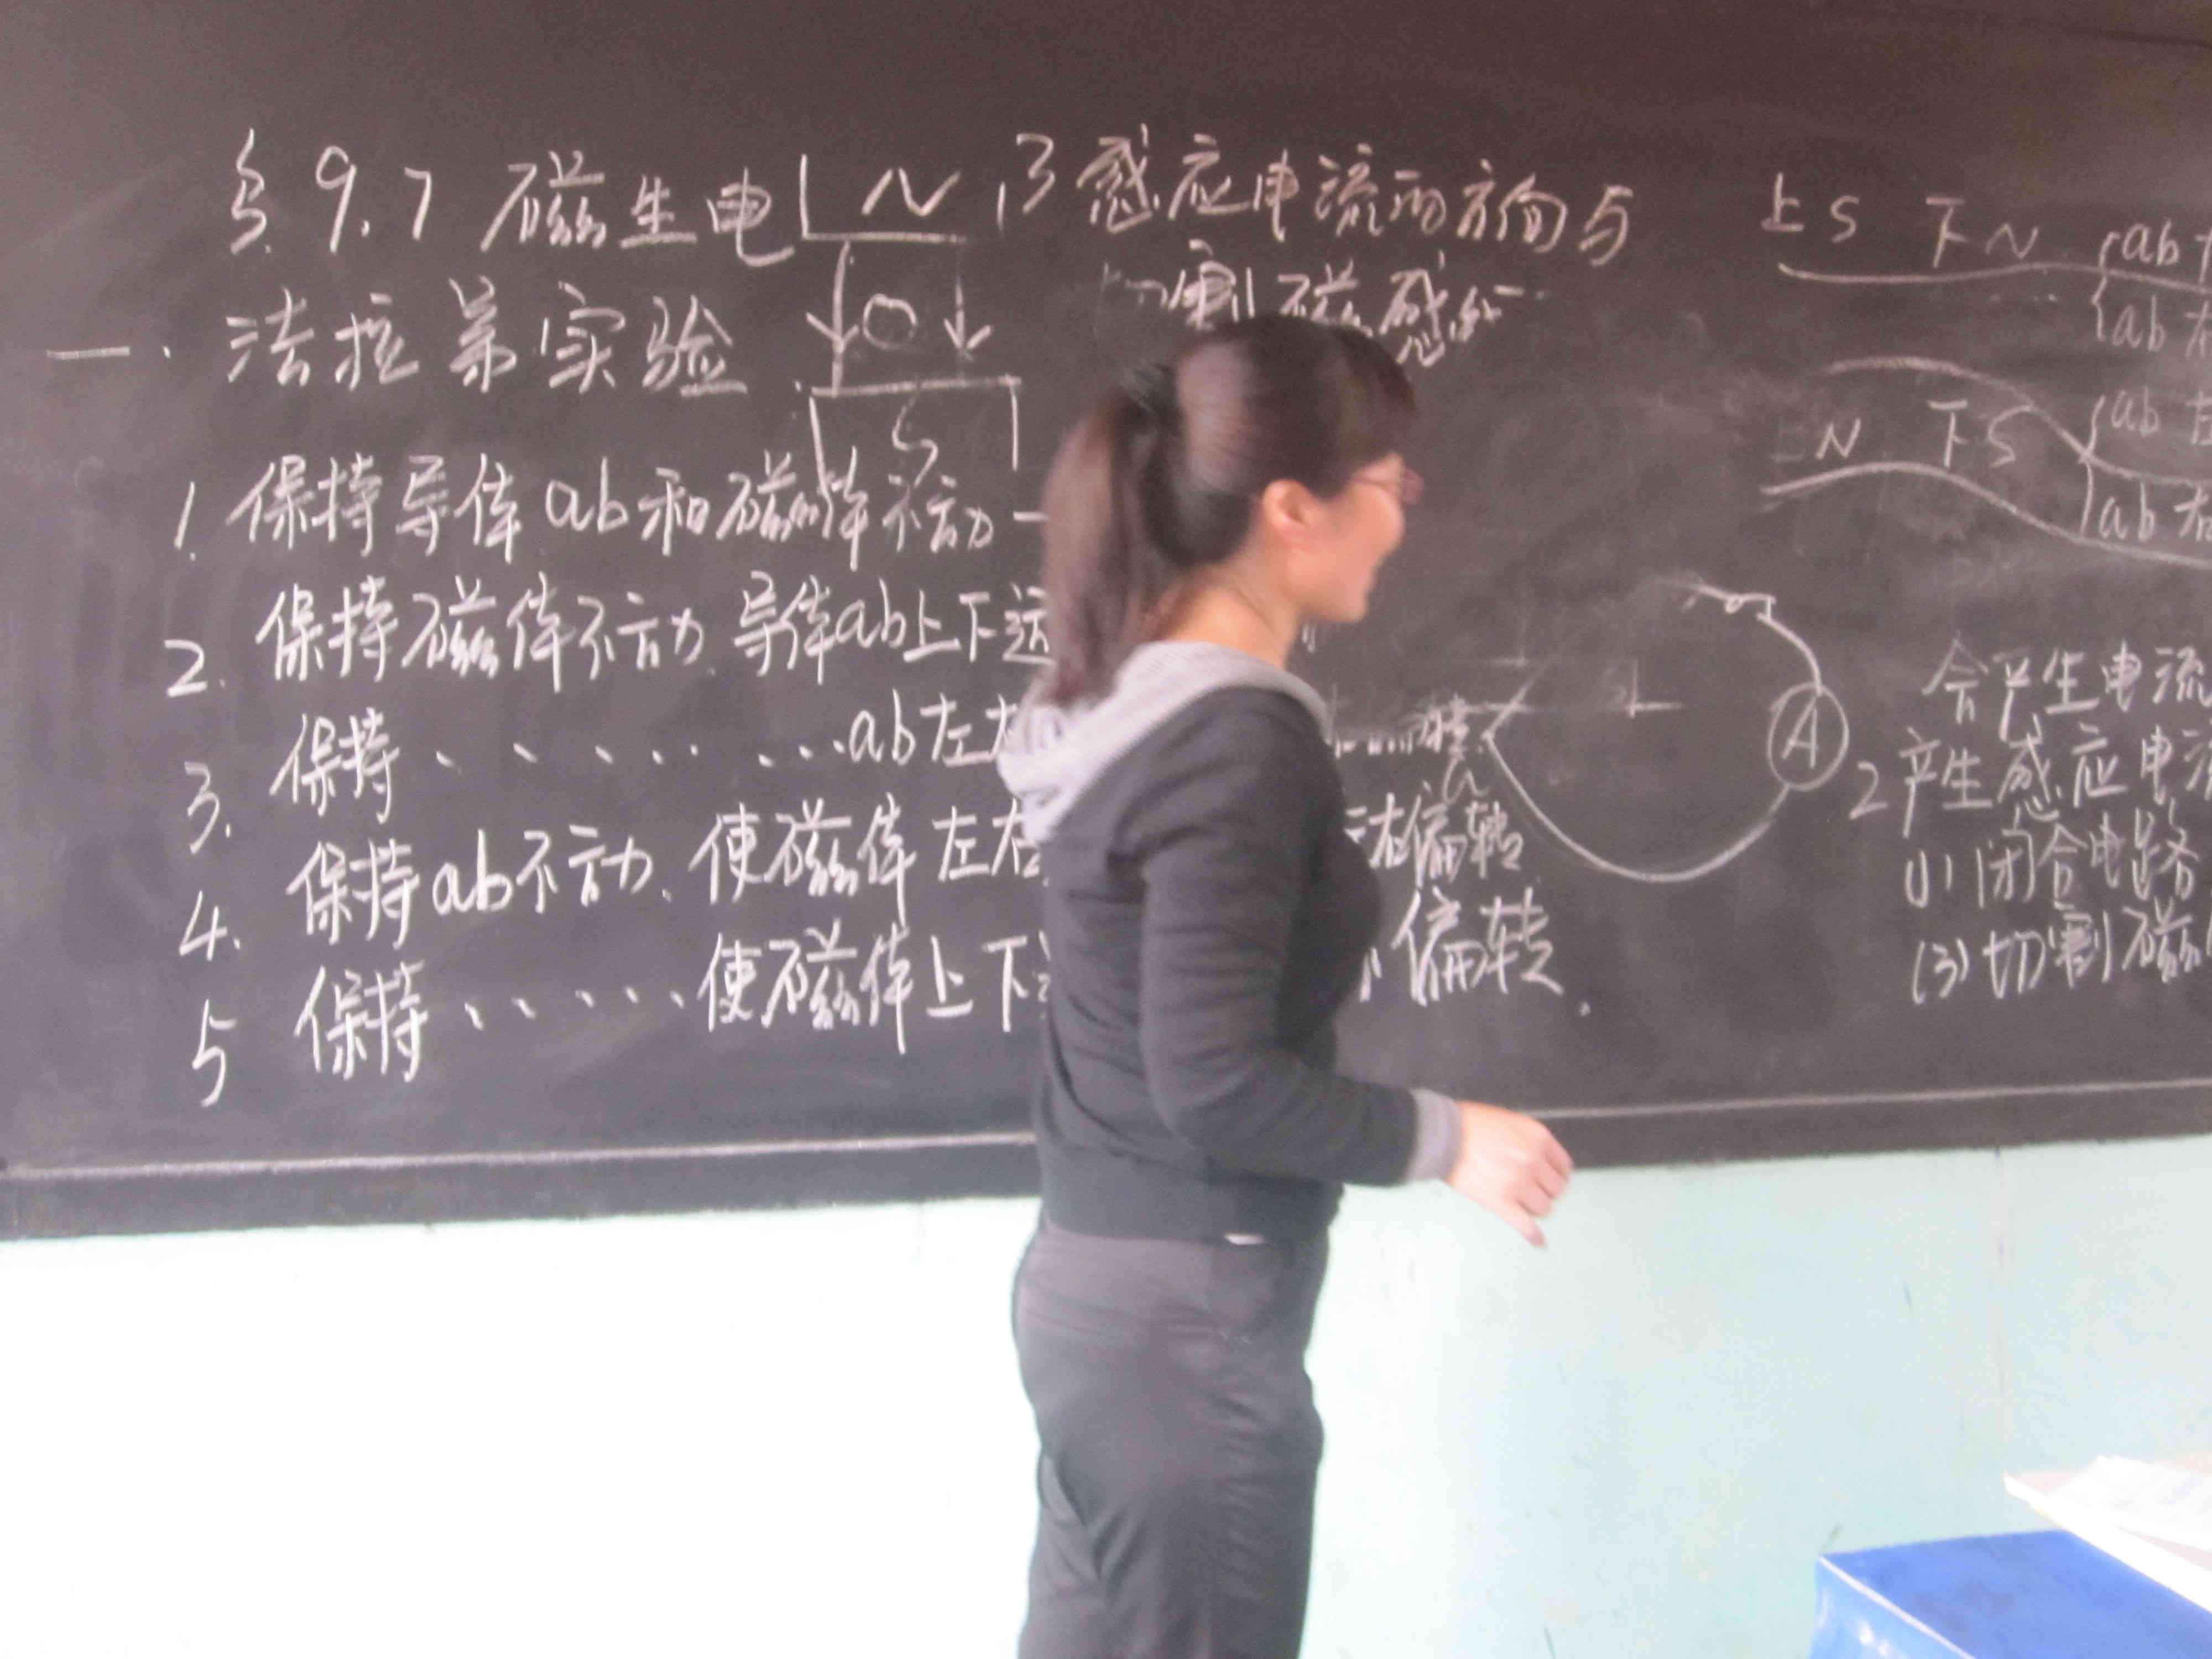 §9.7 磁生电
一. 法拉第实验
N
S
1. 保持导体ab和磁体不动
2. 保持磁体不动. 导体ab上下运
3. 保持 . . . . . . . . ab左右
4. 保持ab不动. 使磁体左右
5 保持 . . . . . . 使磁体上下
转
左右偏转
偏转.
3 感应电流的方向与
切割磁感
a
A
上S 下N
ab
ab右
N 下S
ab左
ab右
会产生电流
2 产生感应电流
(1) 闭合电路
(3) 切割磁